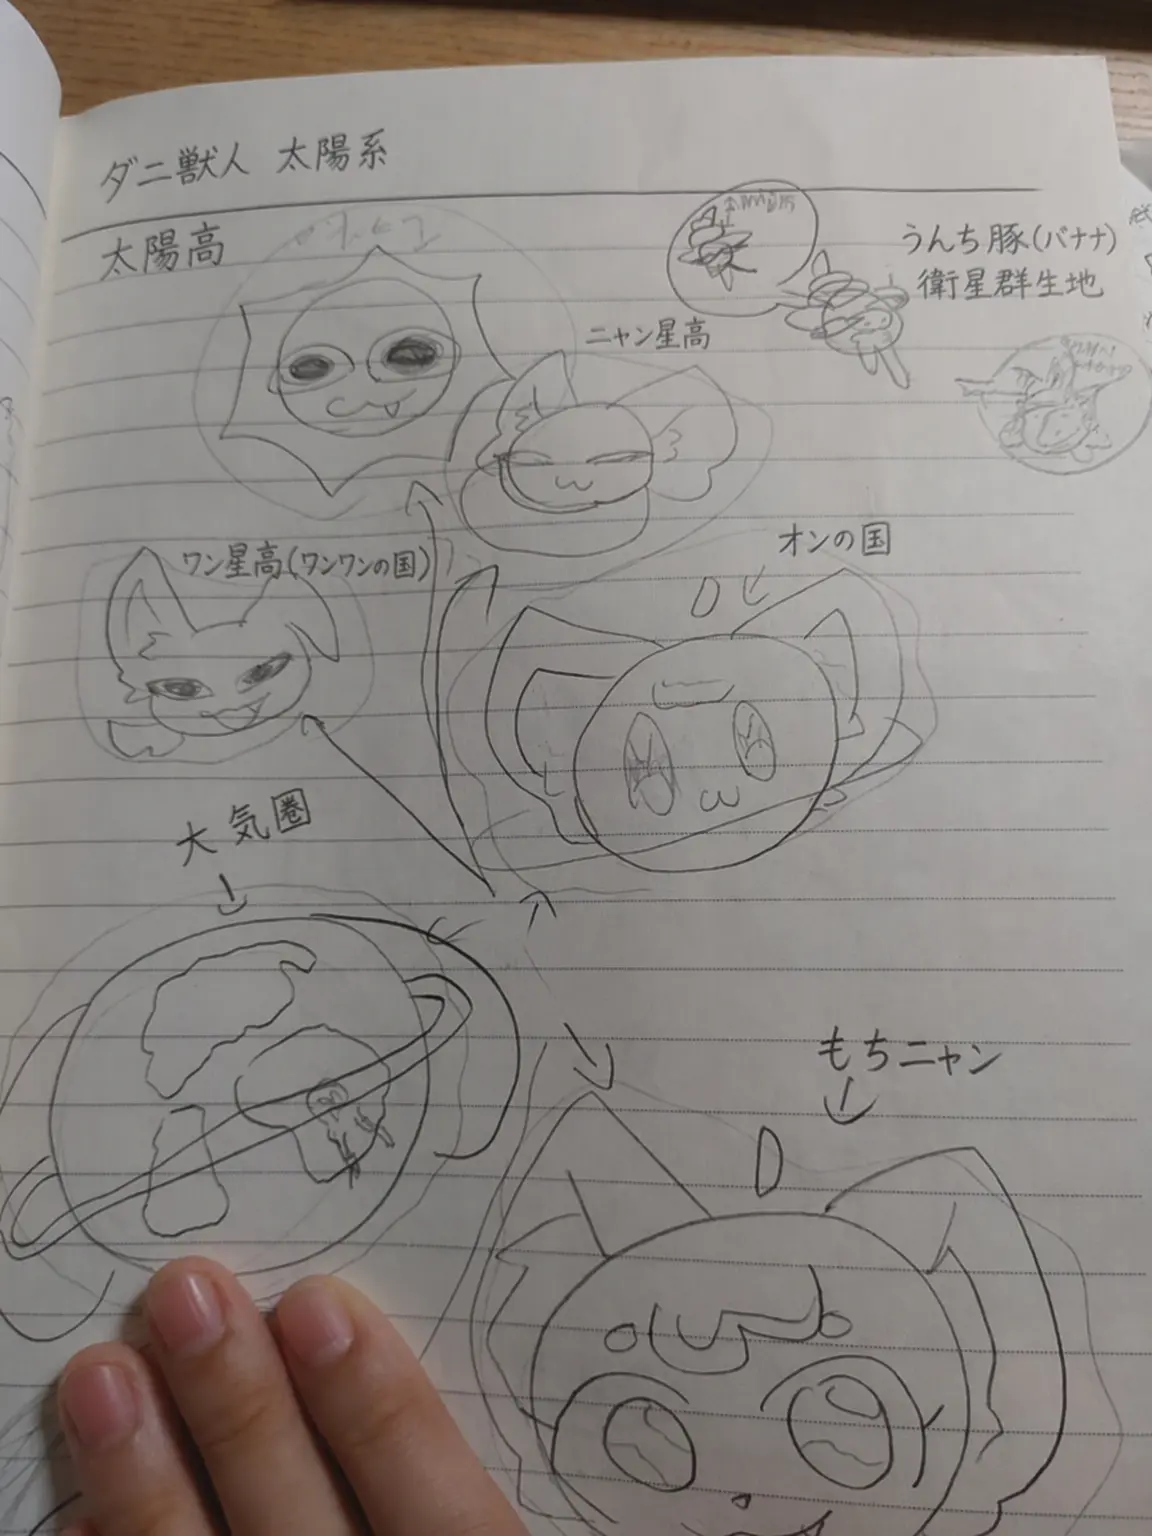 ダニ獣人 太陽系
太陽高
うんち豚(バナナ)
衛星群生地
ニャン星高
オンの国
ワン星高(ワンワンの国)
大気圏
もちニャン